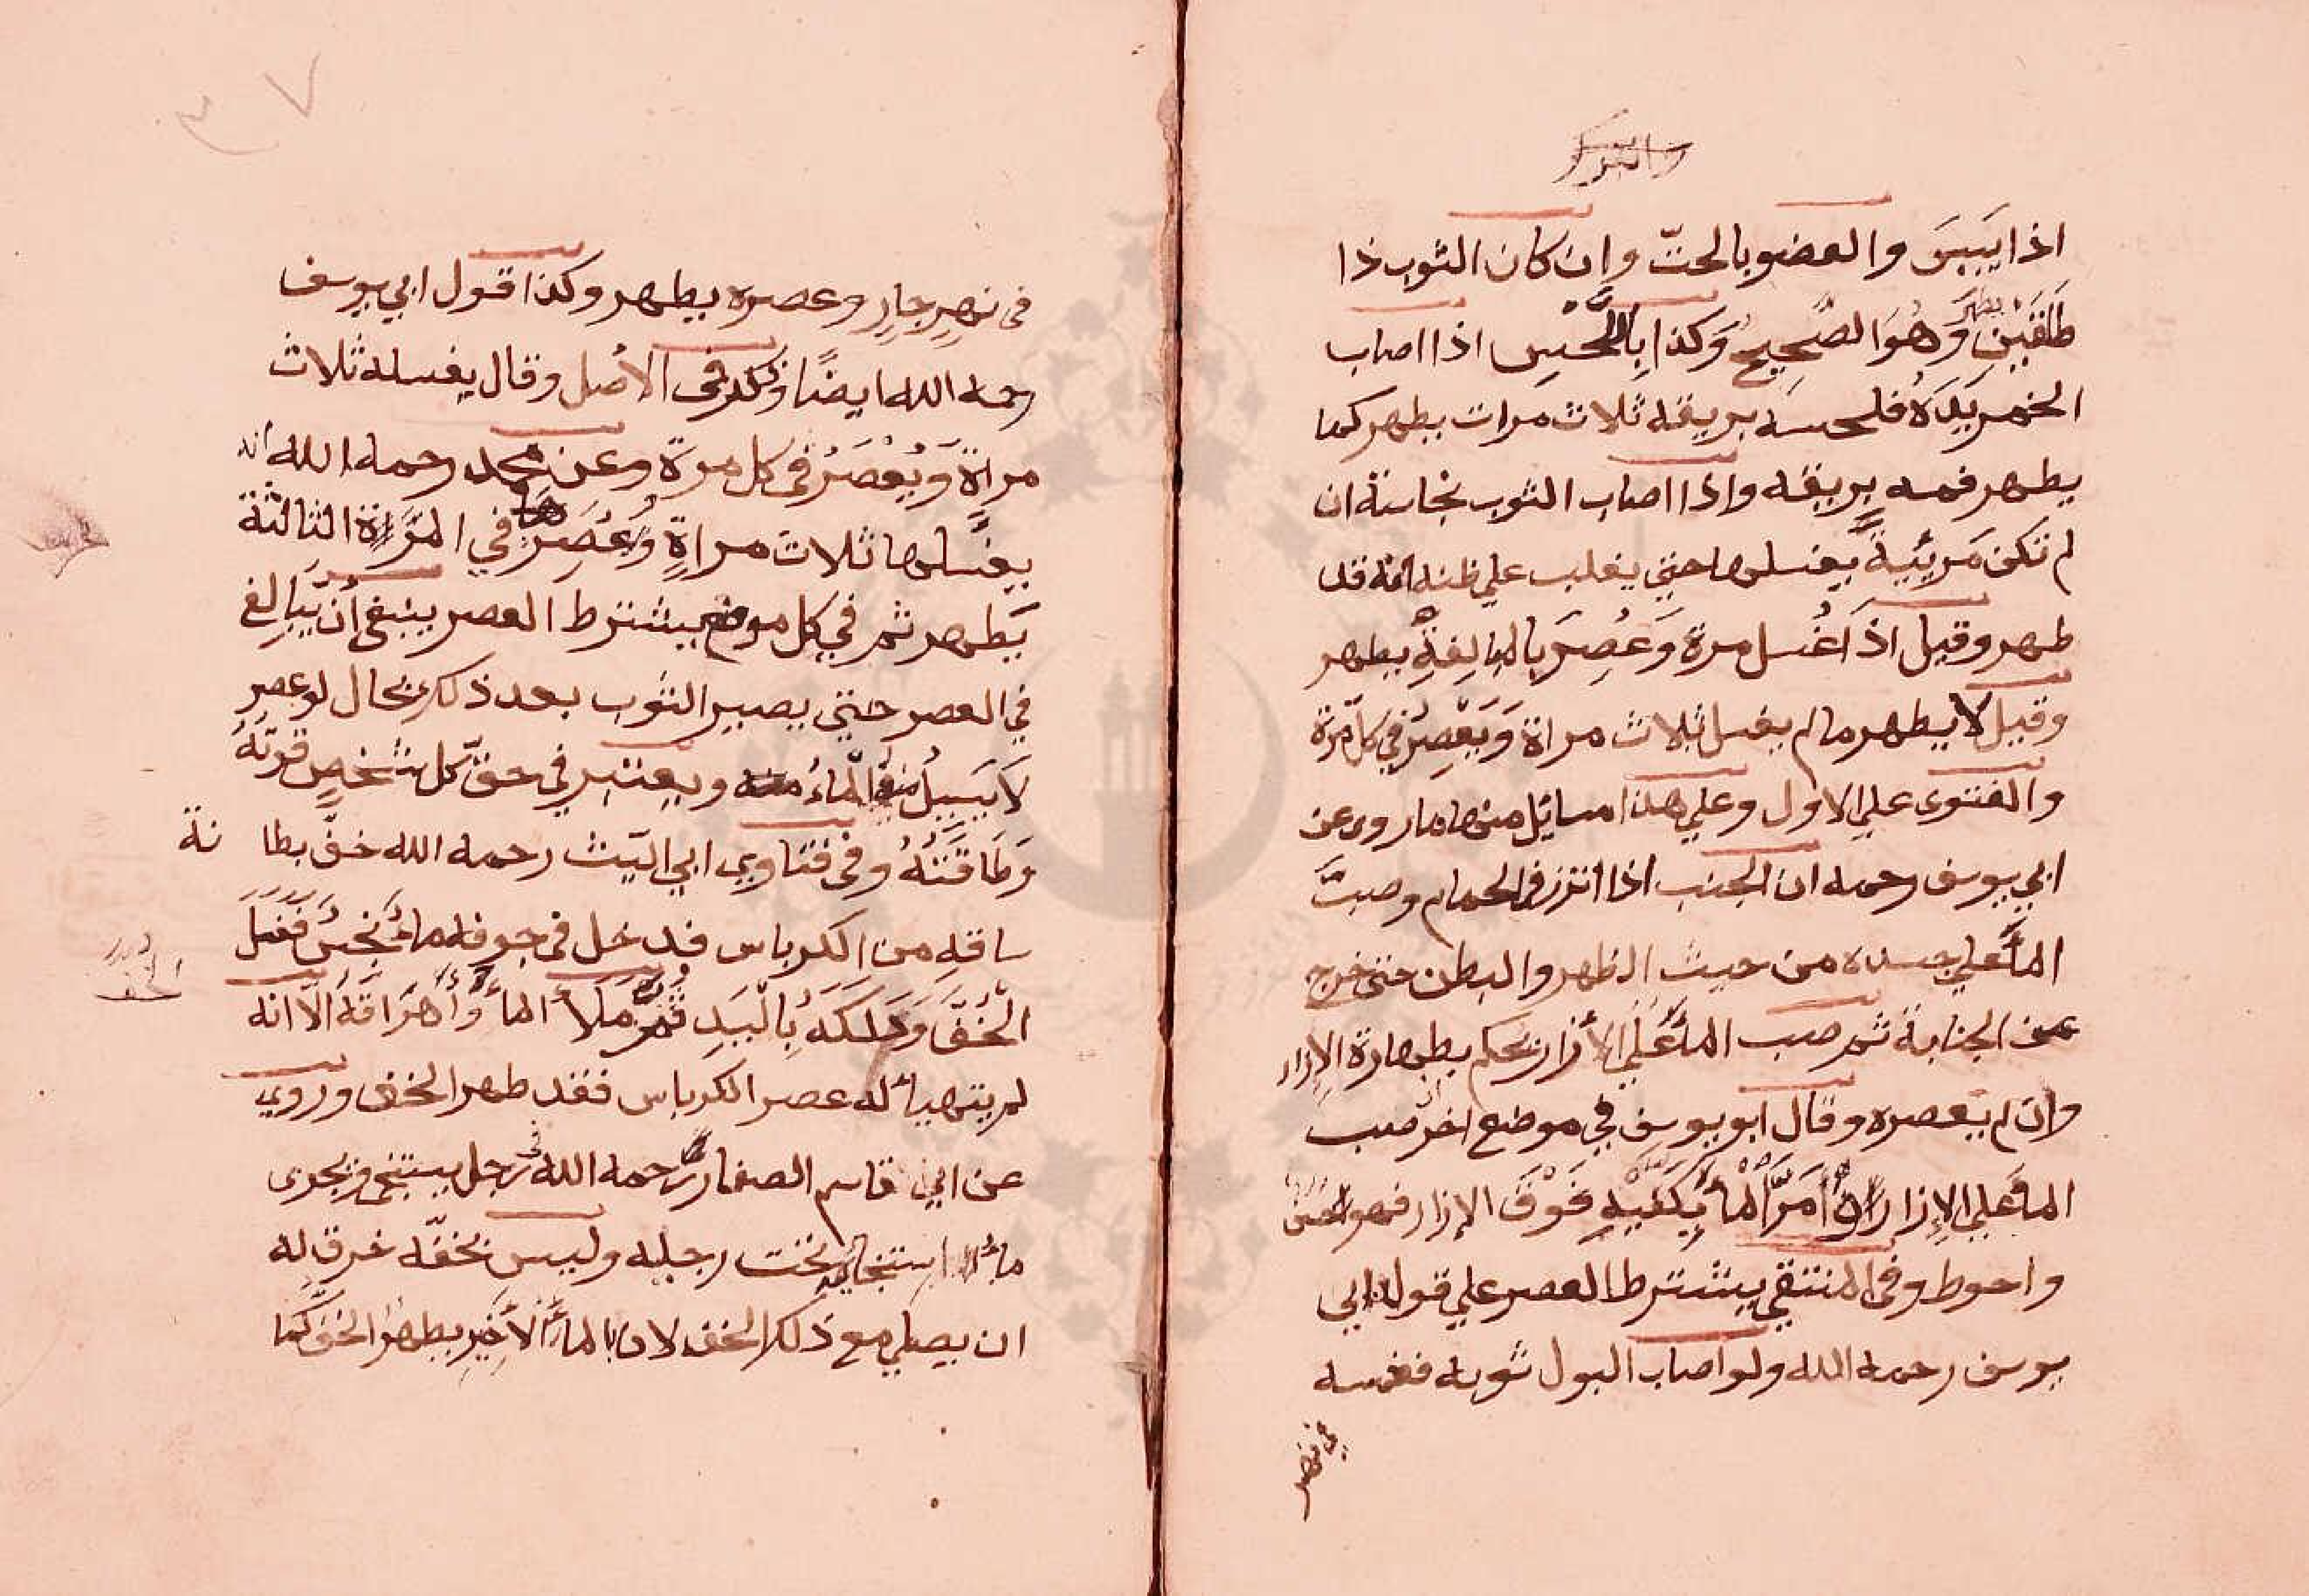 اذا يَبِسَ والعضو بالحتّ وان كان الثوب ذا
طَاقَيْن يطهر وَهُوَ الصَّحِيحُ وَكَذا بِاللَّحْسِ اذا اصاب
الخمر يَدَهُ فلحسَه بريقه ثلاث مرات يطهر كما
يطهر فمه بِريقه واذا اصاب الثوب نجاسة ان
لم تكن مَرئيةً يغسلها حتى يغلب علي ظنه انه قد
طهر وقيل اذا غُسل مرة وَعُصِرَ بالمبالِغةِ يطهر
وقيل لا يطهر مالم يغسل ثلاث مراة وَيَعْصِرُ في كل مَرّة
والفتوى علي الاول وعلي هذا مسائل منها ما روى عن
ابي يوسف رحمه ان الجنب اذا اتزر في الحمام وصبّ
الماءَ علي جسده من حيث الظهر والبطن حتى خرج
عن الجنابة ثم صب الماءَ عَلَي الأزار يحكم بطهارة الإزار
وان لم يعصره وقال ابو يوسف في موضع اخر صب
الماءَ علي الإزار أَمَرَّ المأَ بِكفَّيهِ فَوْقَ الإزار فهو احسن
واحوط وفي المنتقي يشترط العصر علي قول ابي
يوسف رحمه الله ولو اصاب البول ثوبه فغمسه
في نهر
٣٧
في نهرٍ جارٍ وعصره يطهر وكذا قول ابي يوسف
رحمه الله ايضًا وذكر في الأصل وقال يغسله ثلاث
مراةً وَيُعْصَرُ في كل مرة وعن محمد رحمه الله انه
يغسلها ثلاث مراةٍ وَعُصِرَ في المرَّاة الثالثة
يَطهر ثم في كل موضع يشترط العصر ينبغي أن يّبالغ
في العصر حتي يصير الثوب بعد ذلك بحال لو عصر
لاَ يَسِيلُ منه الماءُ ويعتبر في حقّ كل شخصٍ قوتَهُ
وَطَاقَتَهُ وفي فتاوي ابي اليّث رحمه الله خفّ بطانة
ساقهِ من الكرباس فدخل في جوفه ماءٌ نَجِسٌ فَغَسَلَ
الْخُفَّ وَدَلكَهُ بِالْيَدِ ثُمَّ مَلَأَ المأَ وَأَهْرَاقَهُ الّا انه
لم يتهيأ له عصر الكرباس فقد طهر الخف وروي
عن ابي قاسم الصفار رحمه الله في رجل يستنجي ويجرى
ماءُ استنجائه تحت رجليه وليس بخفّه خرق له
ان يصلي مع ذلك الخف لان بالماءِ الأَخِيرِ يطهر الخف كَما